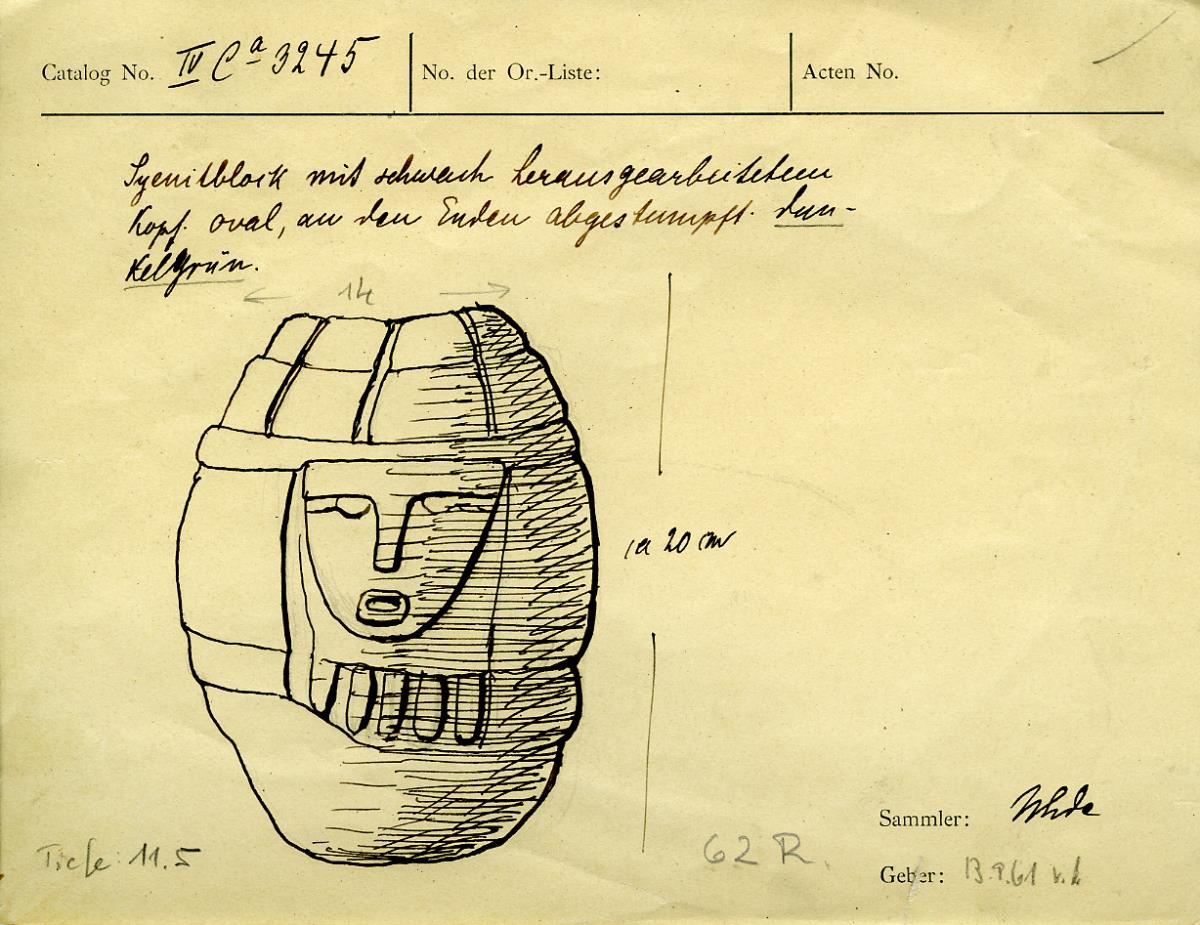 Catalog No. IV Ca 3245
No. der Or.-Liste:
Acten No.
Syenitblock mit schwach herausgearbeitetem
Kopf. oval, an den Enden abgestumpft. dun-
kelgrün.
14
ca 20 cm
Sammler: Uhde
Tiefe: 11.5
62 R.
Geber: 13.9.61